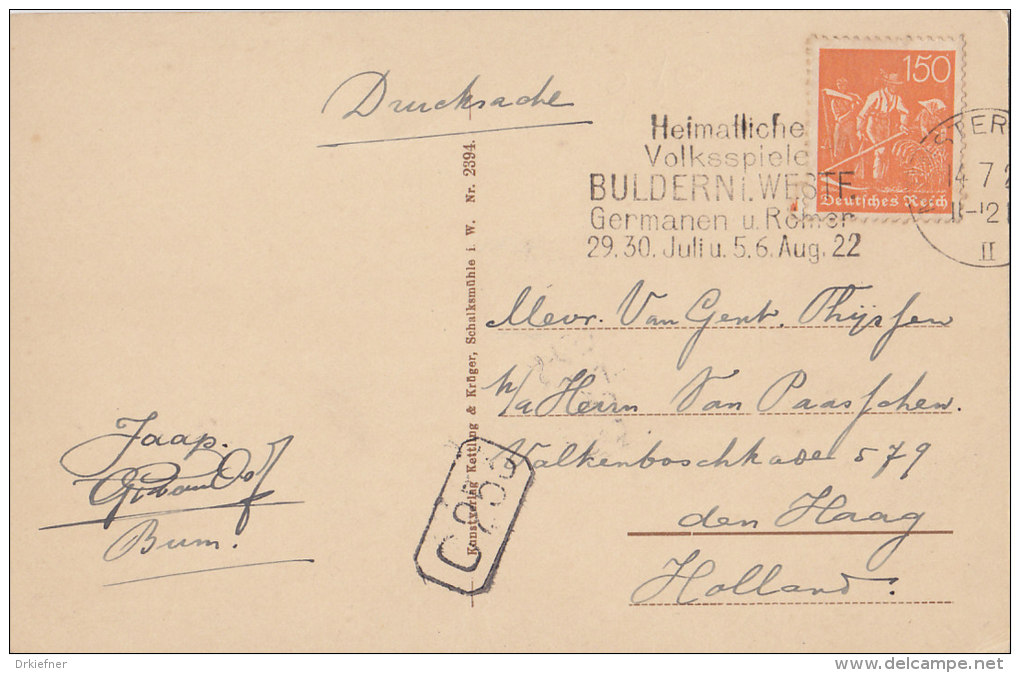 Drucksache
Heimatliche
Volksspiele
BULDERN i. WESTF.
Germanen u. Römer
29. 30. Juli u. 5. 6. Aug. 22
150
Deutsches Reich
14 7 2
11-12
II
Kunstverlag Kettling & Krüger, Schalksmühle i. W. Nr. 2394.
Mevr. Van Gent. Thijssen
p/a Herrn Van Paasschen.
Valkenboschkade 579
den Haag
Holland.
Jaap.
Bum.
Drkiefner
delcampe.net